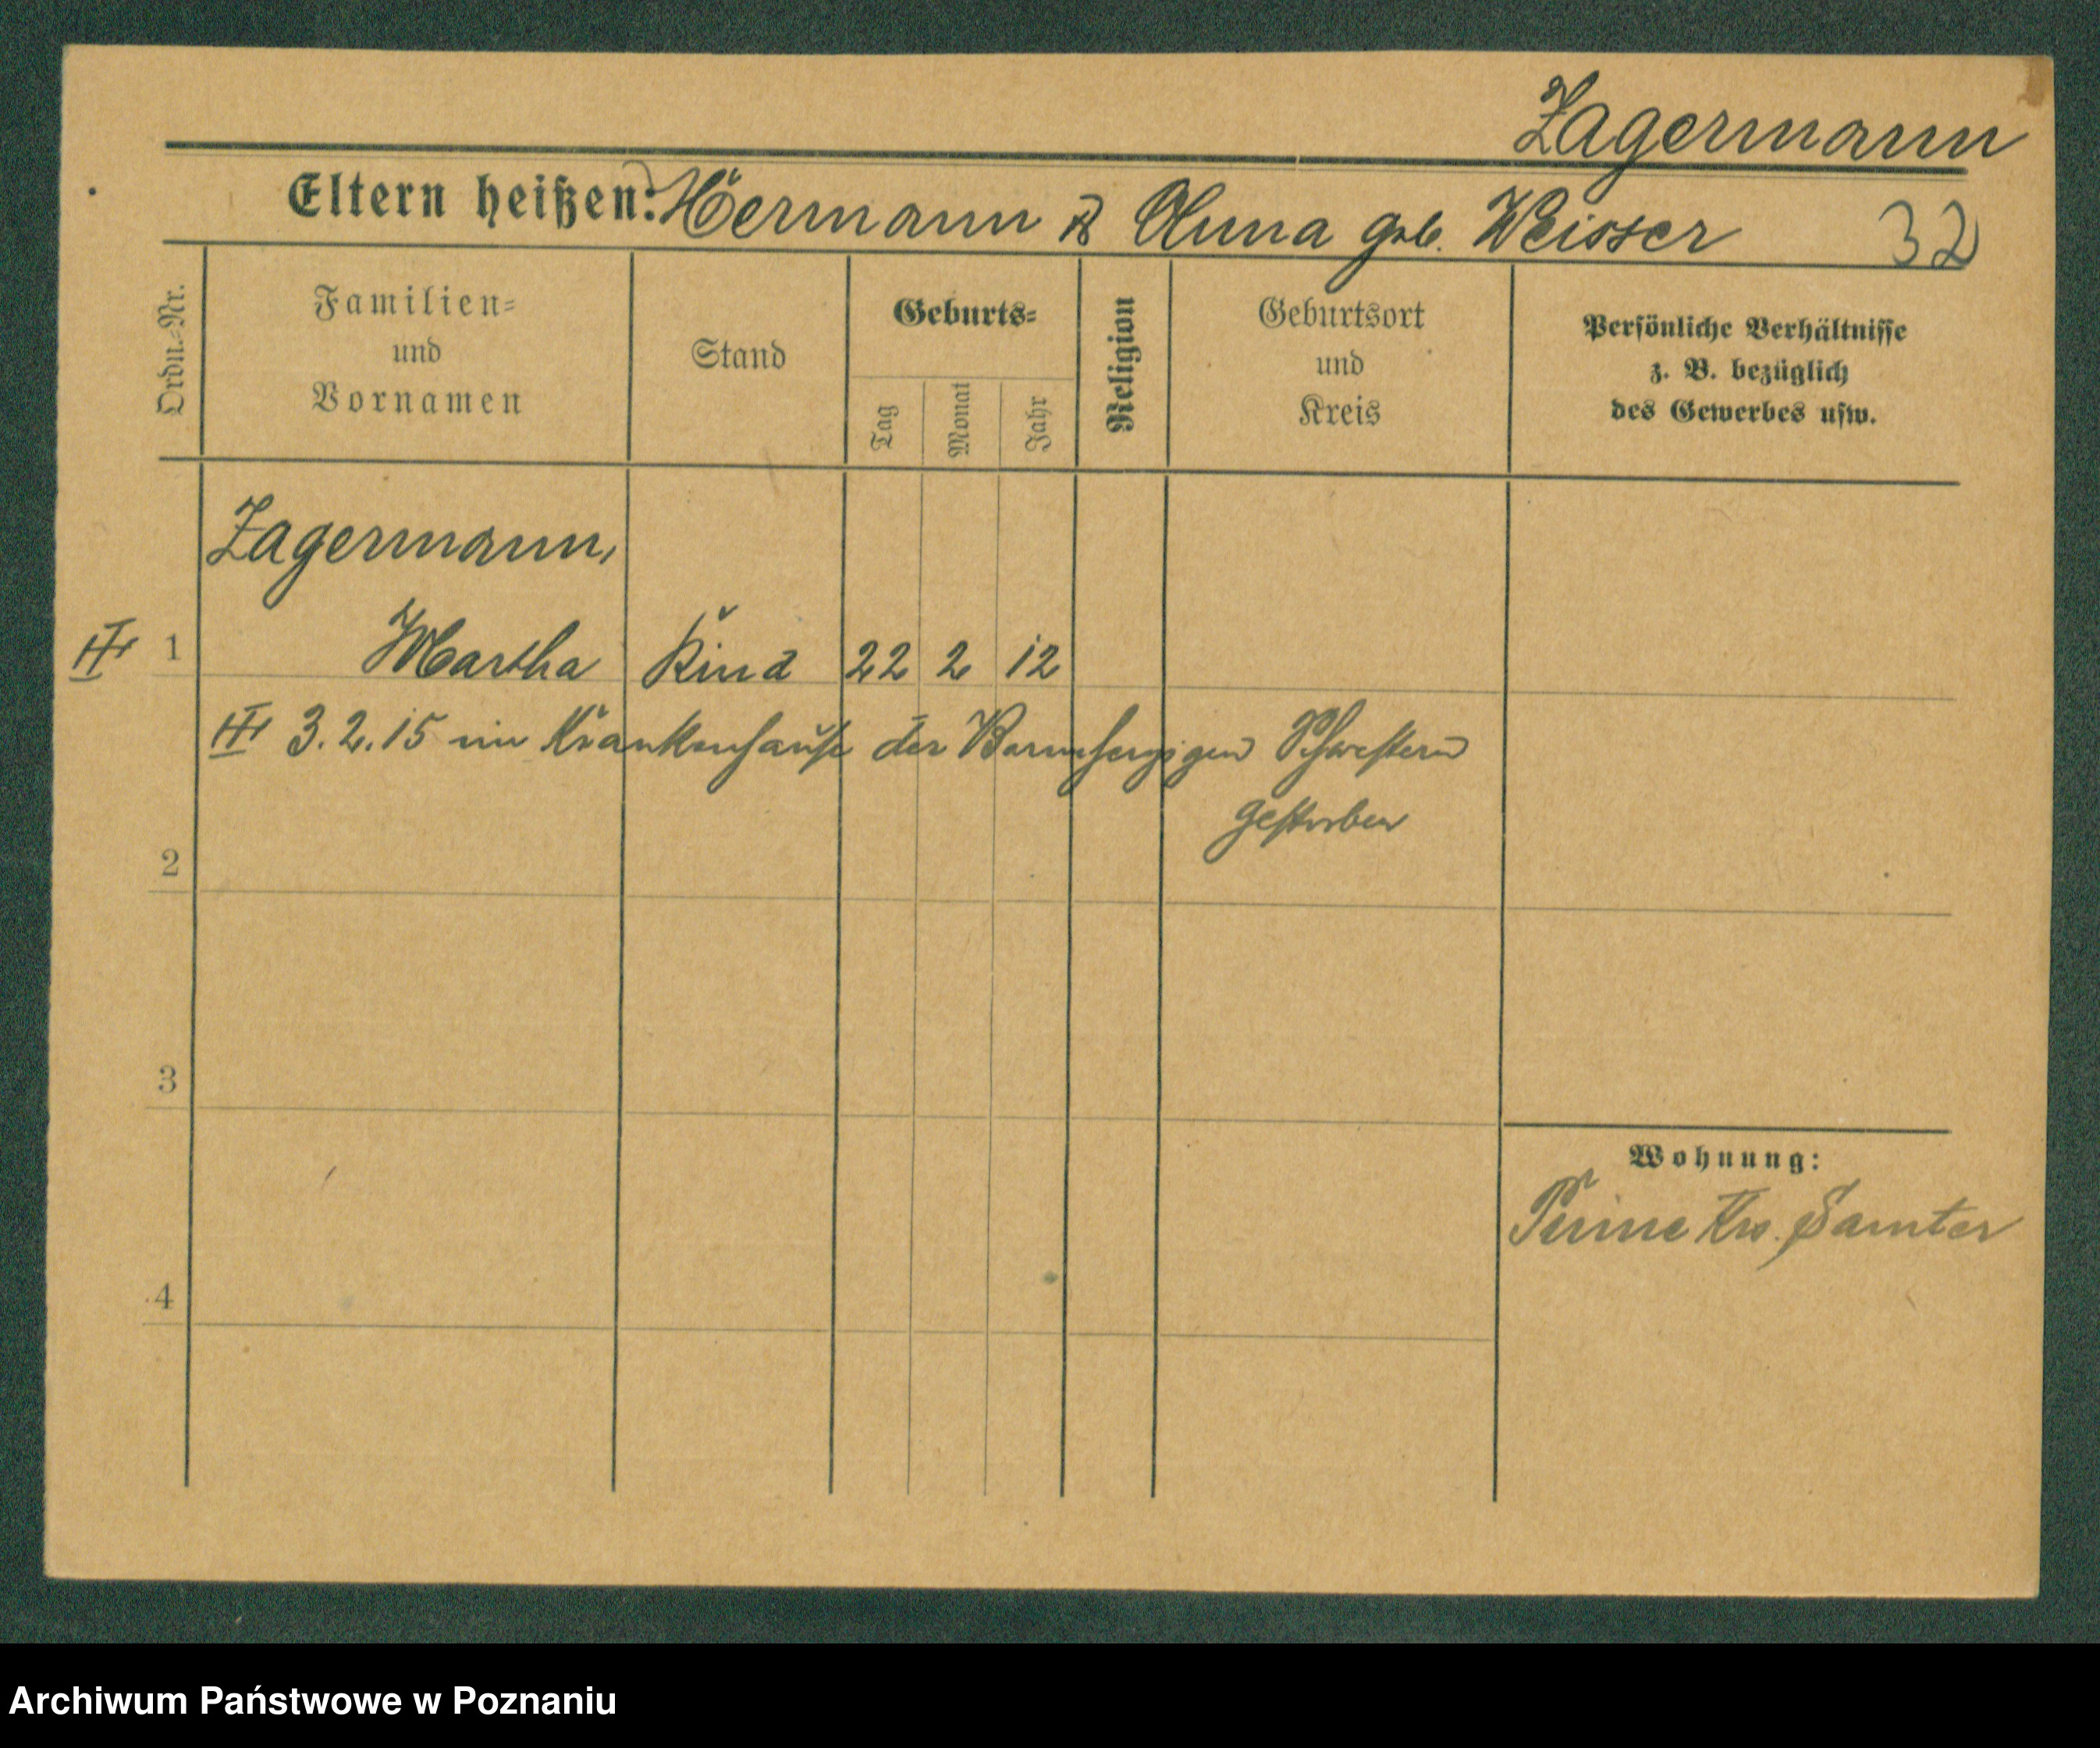 Zagermann
Eltern heißen: Hermann & Anna geb. Weisser 32
Ordn.=Nr.
Familien=
und
Vornamen
Stand
Geburts=
Tag
Monat
Jahr
Religion
Geburtsort
und
Kreis
Persönliche Verhältnisse
z. B. bezüglich
des Gewerbes usw.
Zagermann,
1 Martha Kind 22 2 12
3.2.15 im Krankenhause der Barmherzigen Schwestern
gestorben
2
3
Wohnung:
Krs. Samter
4
Archiwum Państwowe w Poznaniu